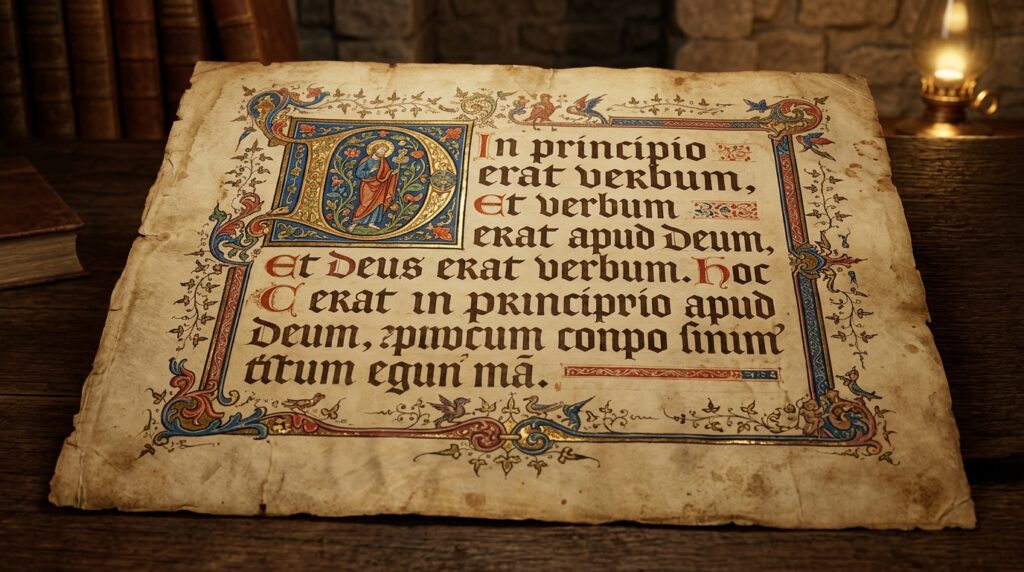 D
In principio
erat verbum,
Et verbum
erat apud Deum,
Et Deus erat verbum. Hoc
C erat in principrio apud
Deum, conpo
mã.